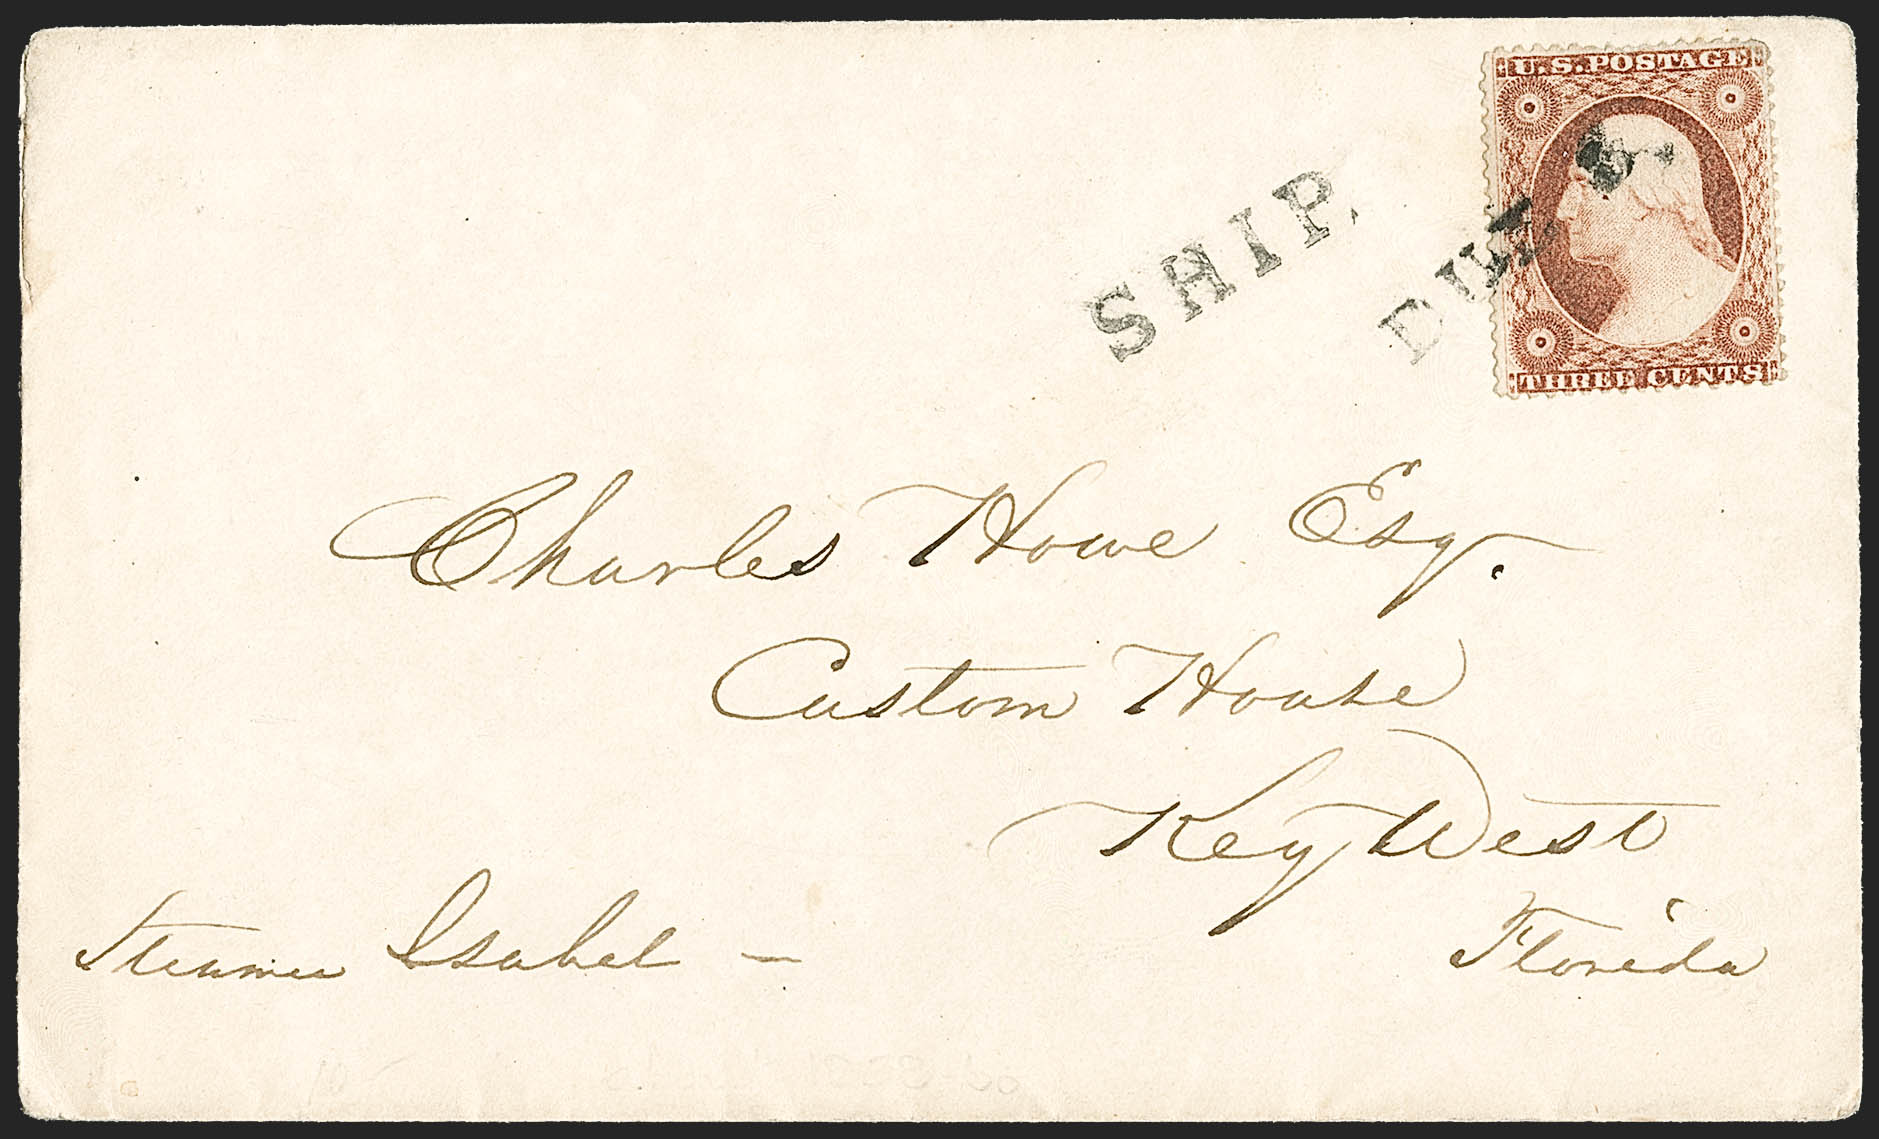 U.S. POSTAGE
SHIP.
DUE 6
THREE CENTS
Charles Howe Esq.
Custom House
Key West
Florida
Steamer Isabel —